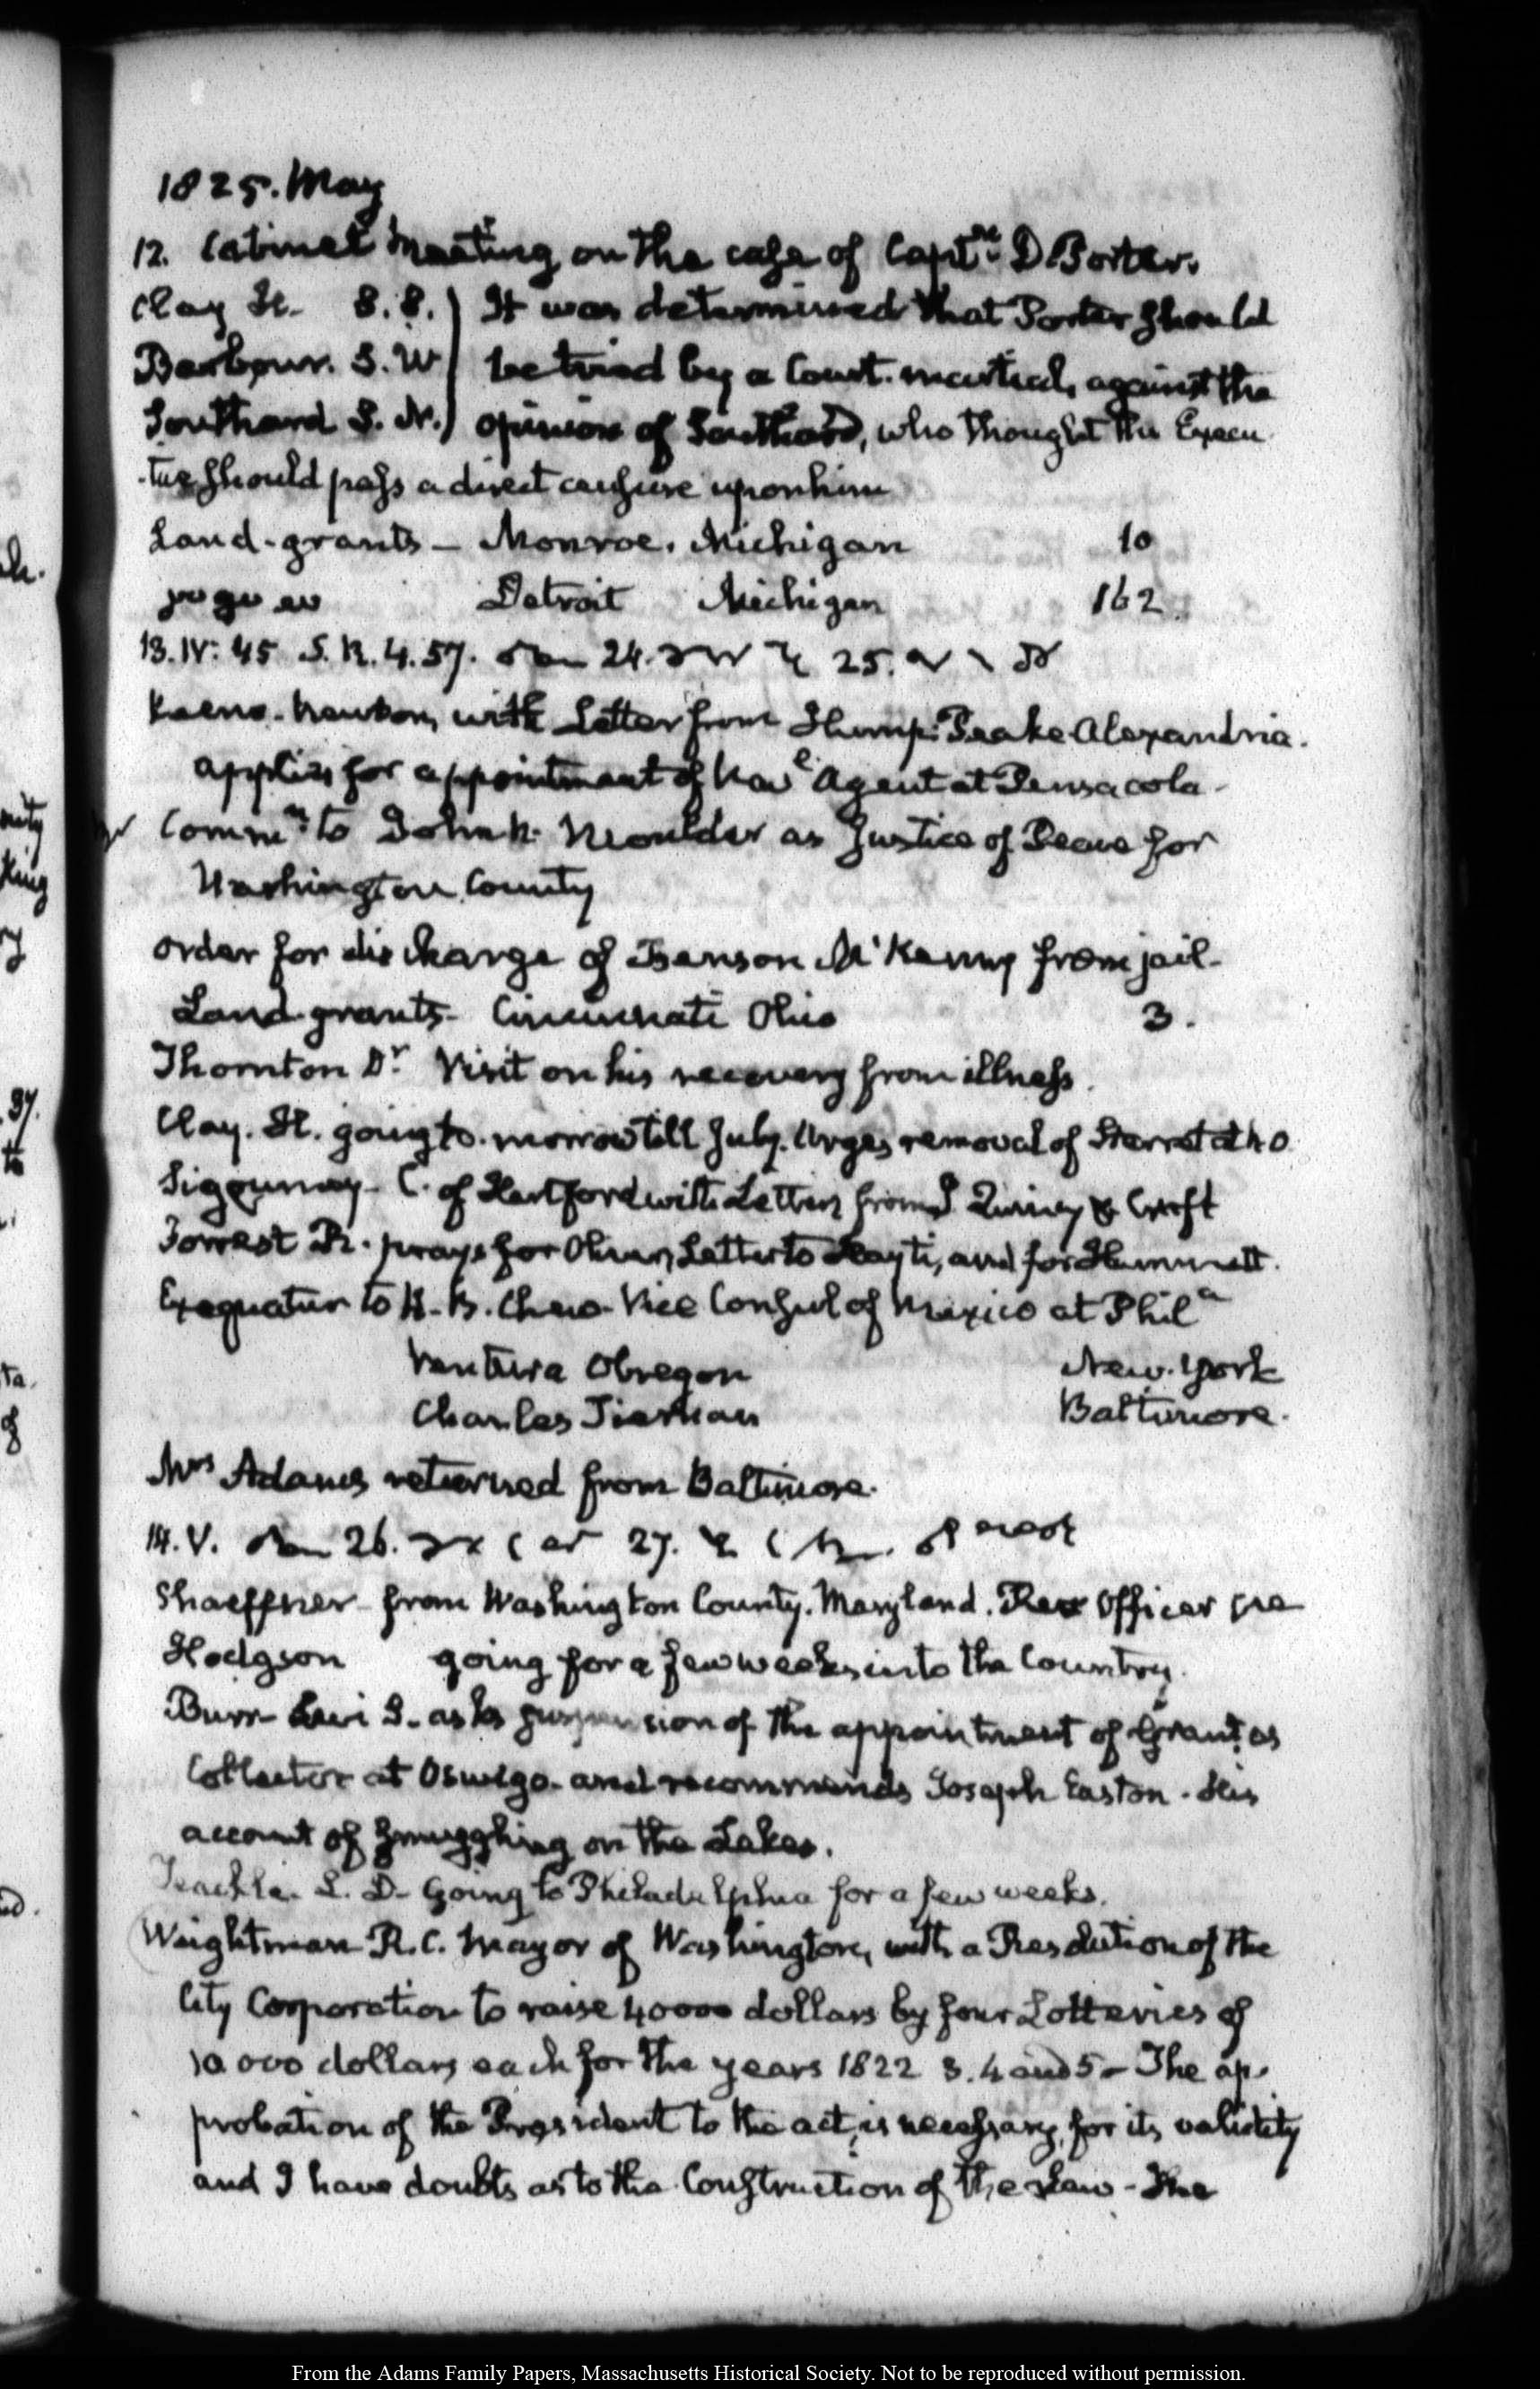 1825. May
12. Cabinet Meeting on the case of Captn. D Porter.
Clay H. S.S. ) It was determined that Porter should
Barbour. S. W ) be tried by a Court-martial, against the
Southard S. N. ) opinion of Southard, who thought the Execu
-tive should pass a direct censure upon him
Land-grants — Monroe. Michigan 10
Detroit Michigan 162.
13. IV: 45 S. R. 4.57. 24. 25.
Newton, with Letter from Hump: Peake Alexandria.
applies for appointment of Nav.l Agent at Pensacola-
Comm.n to John N. Moulder as Justice of Peace for
Washington County
order for discharge of Benson McKenny from jail-
Land-grants- Cincinnati Ohio 3.
Thornton Dr. Visit on his recovery from illness.
Clay. H. going to-morrow till July. Urges removal of Sterret at N O
Sigourney- C. of Hartford with Letters from J Quincy & Croft
Forrest R. prays for Letter to Hayti, and for Hummett.
Exequatur to Chew- Vice Consul of Mexico at Phila
Ventura Obregon New-York
Charles Tiernan Baltimore.
Mrs Adams returned from Baltimore.
14. V. 26. 27.
Shaeffner- from Washington County. Maryland. Officer
Hodgson going for a few weeks into the Country.
Burr- Levi S. asks suspension of the appointment of Grant as
Collector at Oswego- and recommends Joseph Easton. His
account of smuggling on the Lakes.
Teackle- L. D- Going to Philadelphia for a few weeks.
Weightman R. C. Mayor of Washington, with a Resolution of the
City Corporation to raise 40000 dollars by four Lotteries of
10000 dollars each for the years 1822 3. 4 and 5- The ap-
probation of the President to the act, is necessary, for its validity
and I have doubts as to the Construction of the Law- The
From the Adams Family Papers, Massachusetts Historical Society. Not to be reproduced without permission.